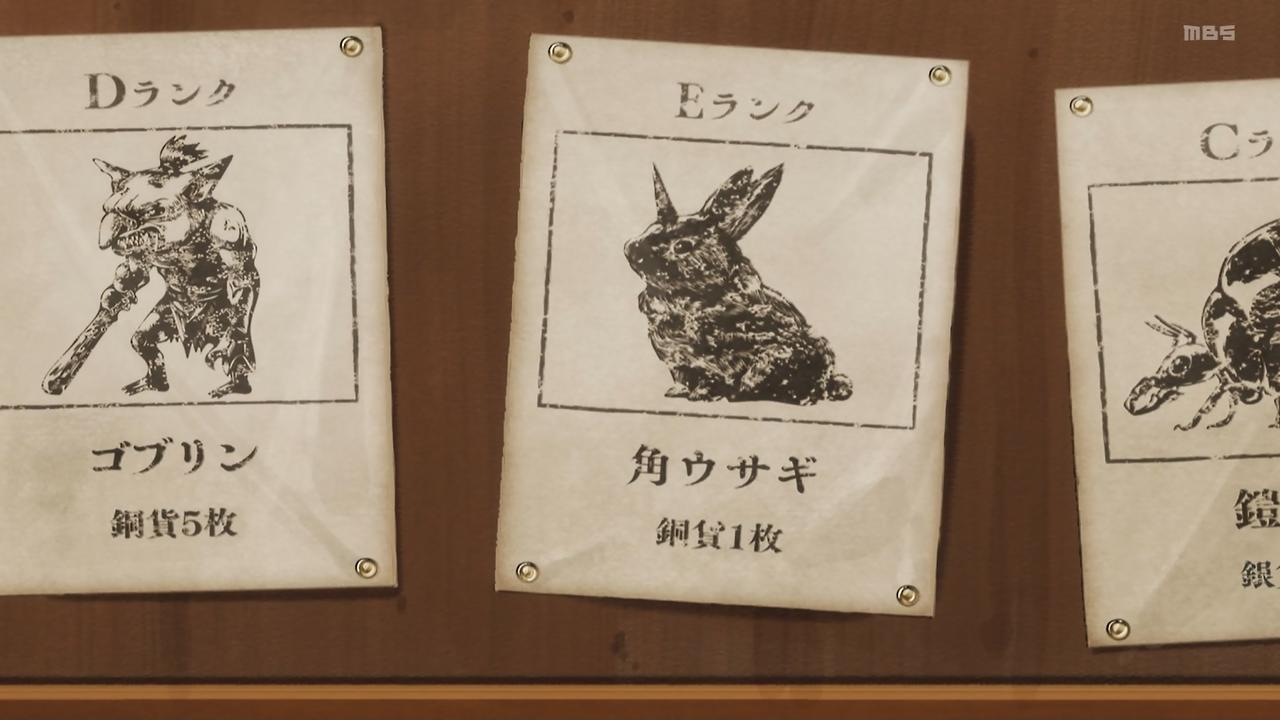 MBS
Dランク
ゴブリン
銅貨5枚
Eランク
角ウサギ
銅貨1枚
Cラ
鎧
銀